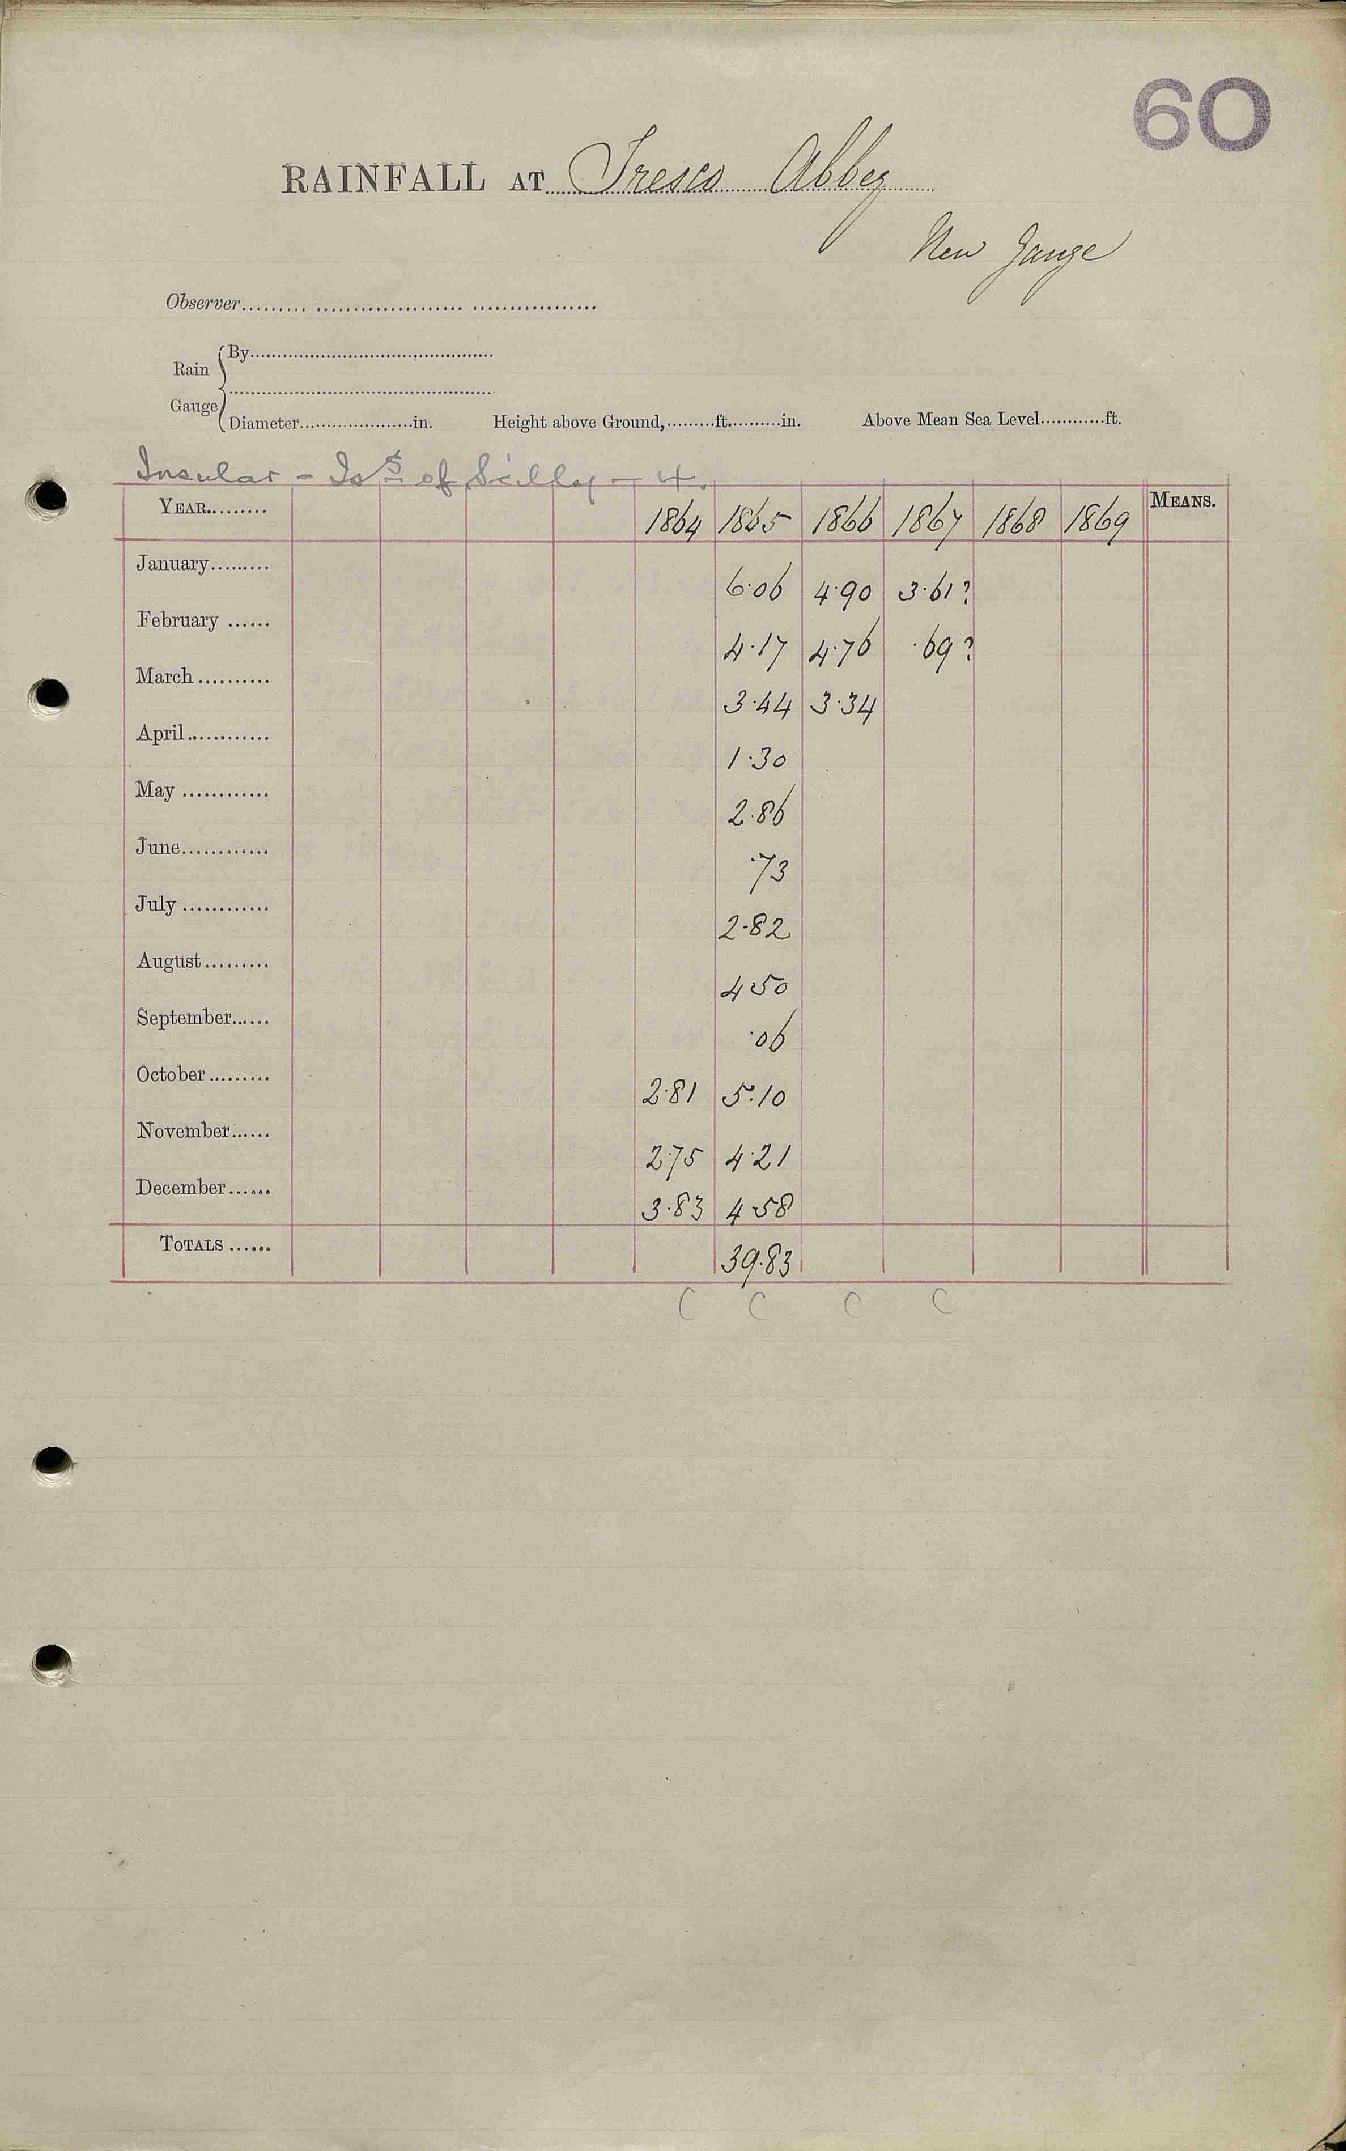 60
RAINFALL AT Tresco Abbey
New Gauge
Observer
Rain Gauge { By
Diameter in. Height above Ground, ft. in. Above Mean Sea Level ft.
Insular - Is.s of Scilly - 4.
YEAR 1864 1865 1866 1867 1868 1869 MEANS.
January 6.06 4.90 3.61?
February 4.17 4.76 .69?
March 3.44 3.34
April 1.30
May 2.86
June .73
July 2.82
August 4.50
September .06
October 2.81 5.10
November 2.75 4.21
December 3.83 4.58
TOTALS 39.83
C C C C